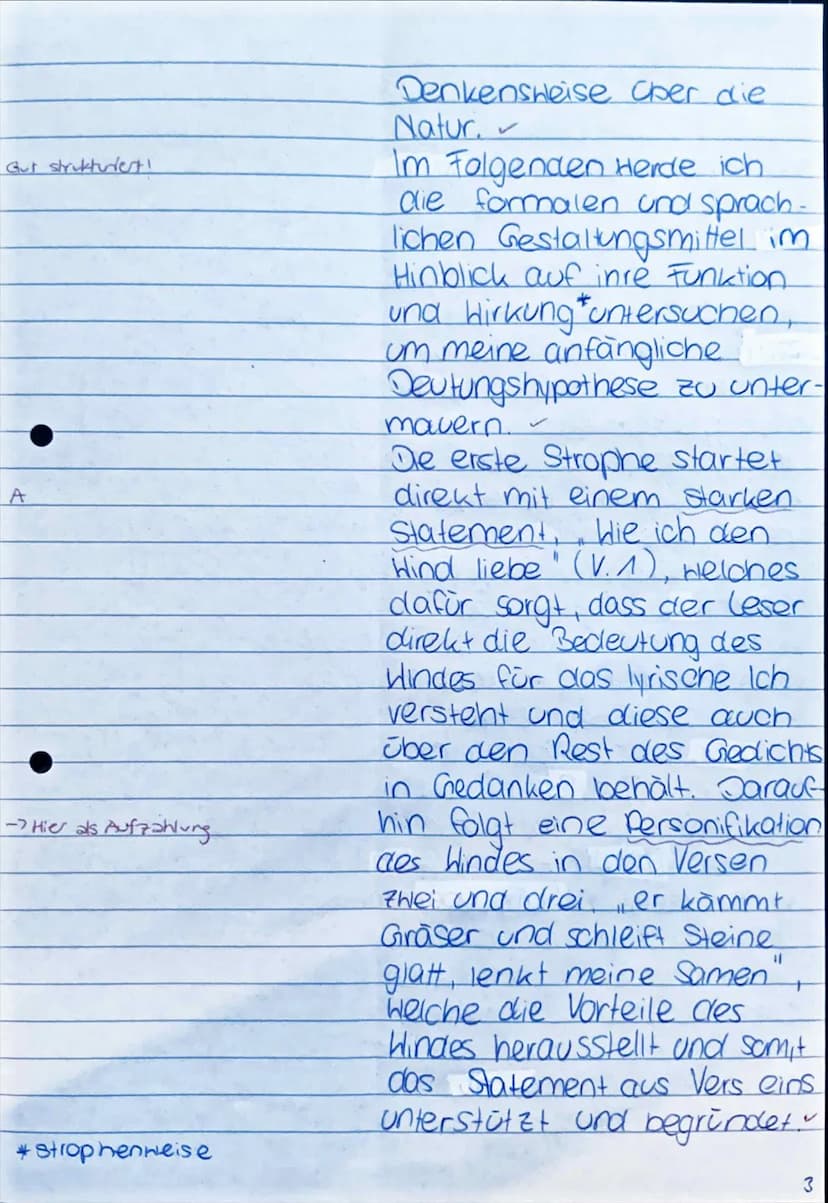 Denkensweise über die
Natur. ✓
Gut strukturiert!
Im Folgenden werde ich
die formalen und sprach-
lichen Gestaltungsmittel im
Hinblick auf ihre Funktion
und Wirkung * untersuchen,
um meine anfängliche
Deutungshypothese zu unter-
mauern. ✓
Die erste Strophe startet
A
direkt mit einem starken
Statement, „Wie ich den
Wind liebe" (V. 1), welches
dafür sorgt, dass der Leser
direkt die Bedeutung des
Windes für das lyrische Ich
versteht und diese auch
über den Rest des Gedichts
in Gedanken behält. Darauf-
-> Hier als Aufzählung
hin folgt eine Personifikation
des Windes in den Versen
zwei und drei, „er kämmt
Gräser und schleift Steine
glatt, lenkt meine Samen",
welche die Vorteile des
Windes herausstellt und somit
das Statement aus Vers eins
unterstützt und begründet. ✓
* strophenweise
3